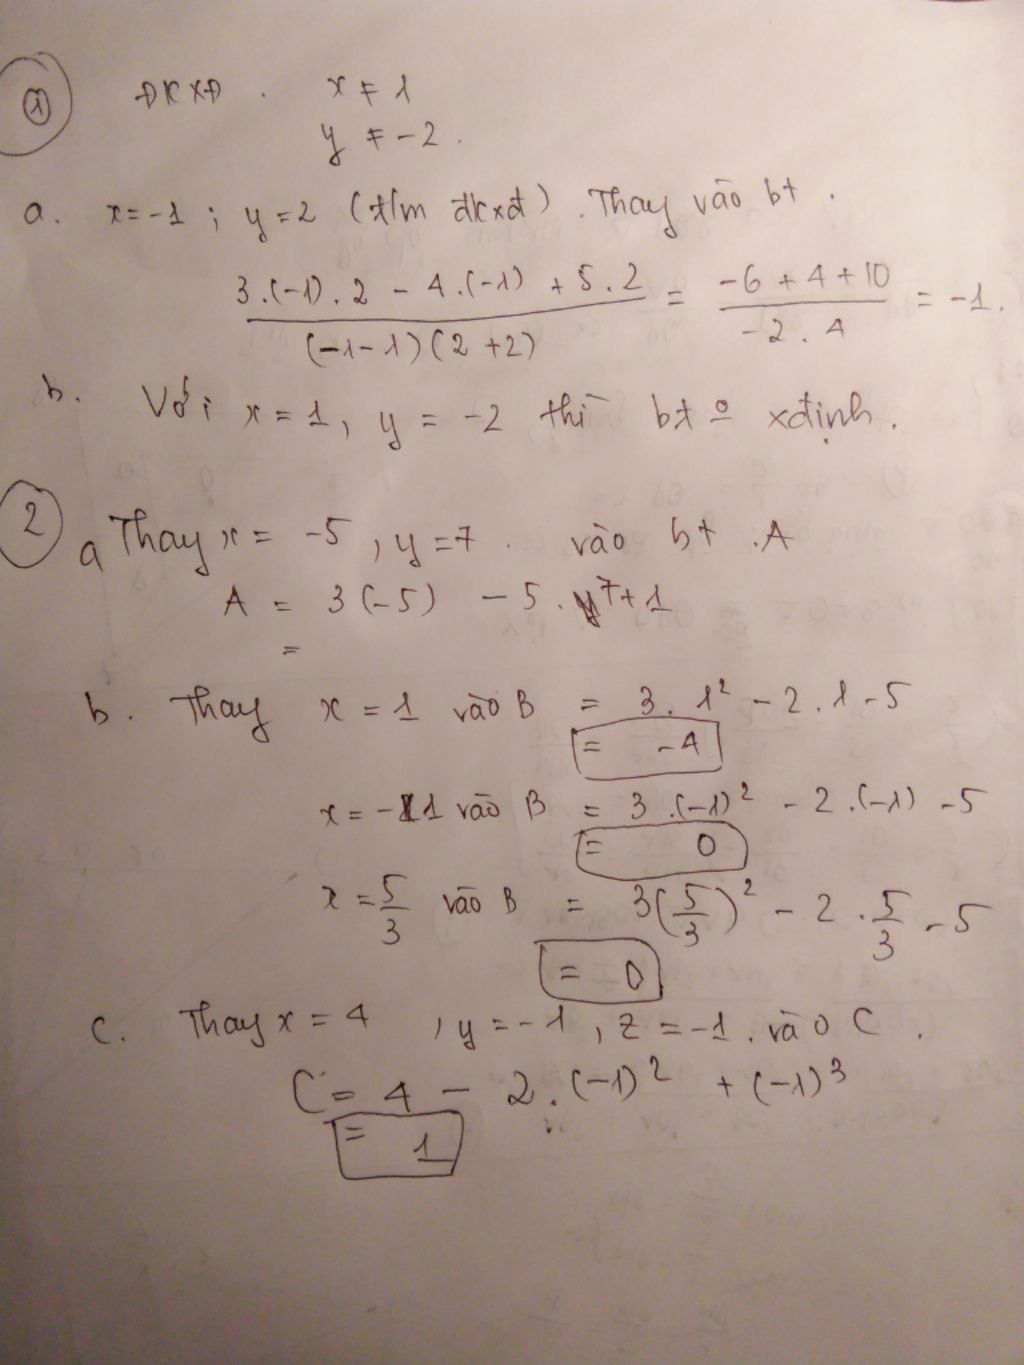 ① ĐKXĐ . x ≠ 1
y ≠ -2 .
a. x = -1 ; y = 2 (t/m đkxđ) . Thay vào bt .
3.(-1).2 - 4.(-1) + 5.2 / (-1-1)(2+2) = -6+4+10 / -2.4 = -1.
b. Với x = 1, y = -2 thì bt o xđịnh .
② a Thay x = -5 , y = 7 . vào bt . A
A = 3(-5) - 5. 7 + 1
=
b. Thay x = 1 vào B = 3. 1² - 2.1 - 5
= -4
x = -1 vào B = 3 .(-1)² - 2.(-1) - 5
= 0
x = 5/3 vào B = 3(5/3)² - 2 . 5/3 - 5
= 0
c. Thay x = 4 , y = -1 , z = -1 . vào C .
C = 4 - 2.(-1)² + (-1)³
= 1